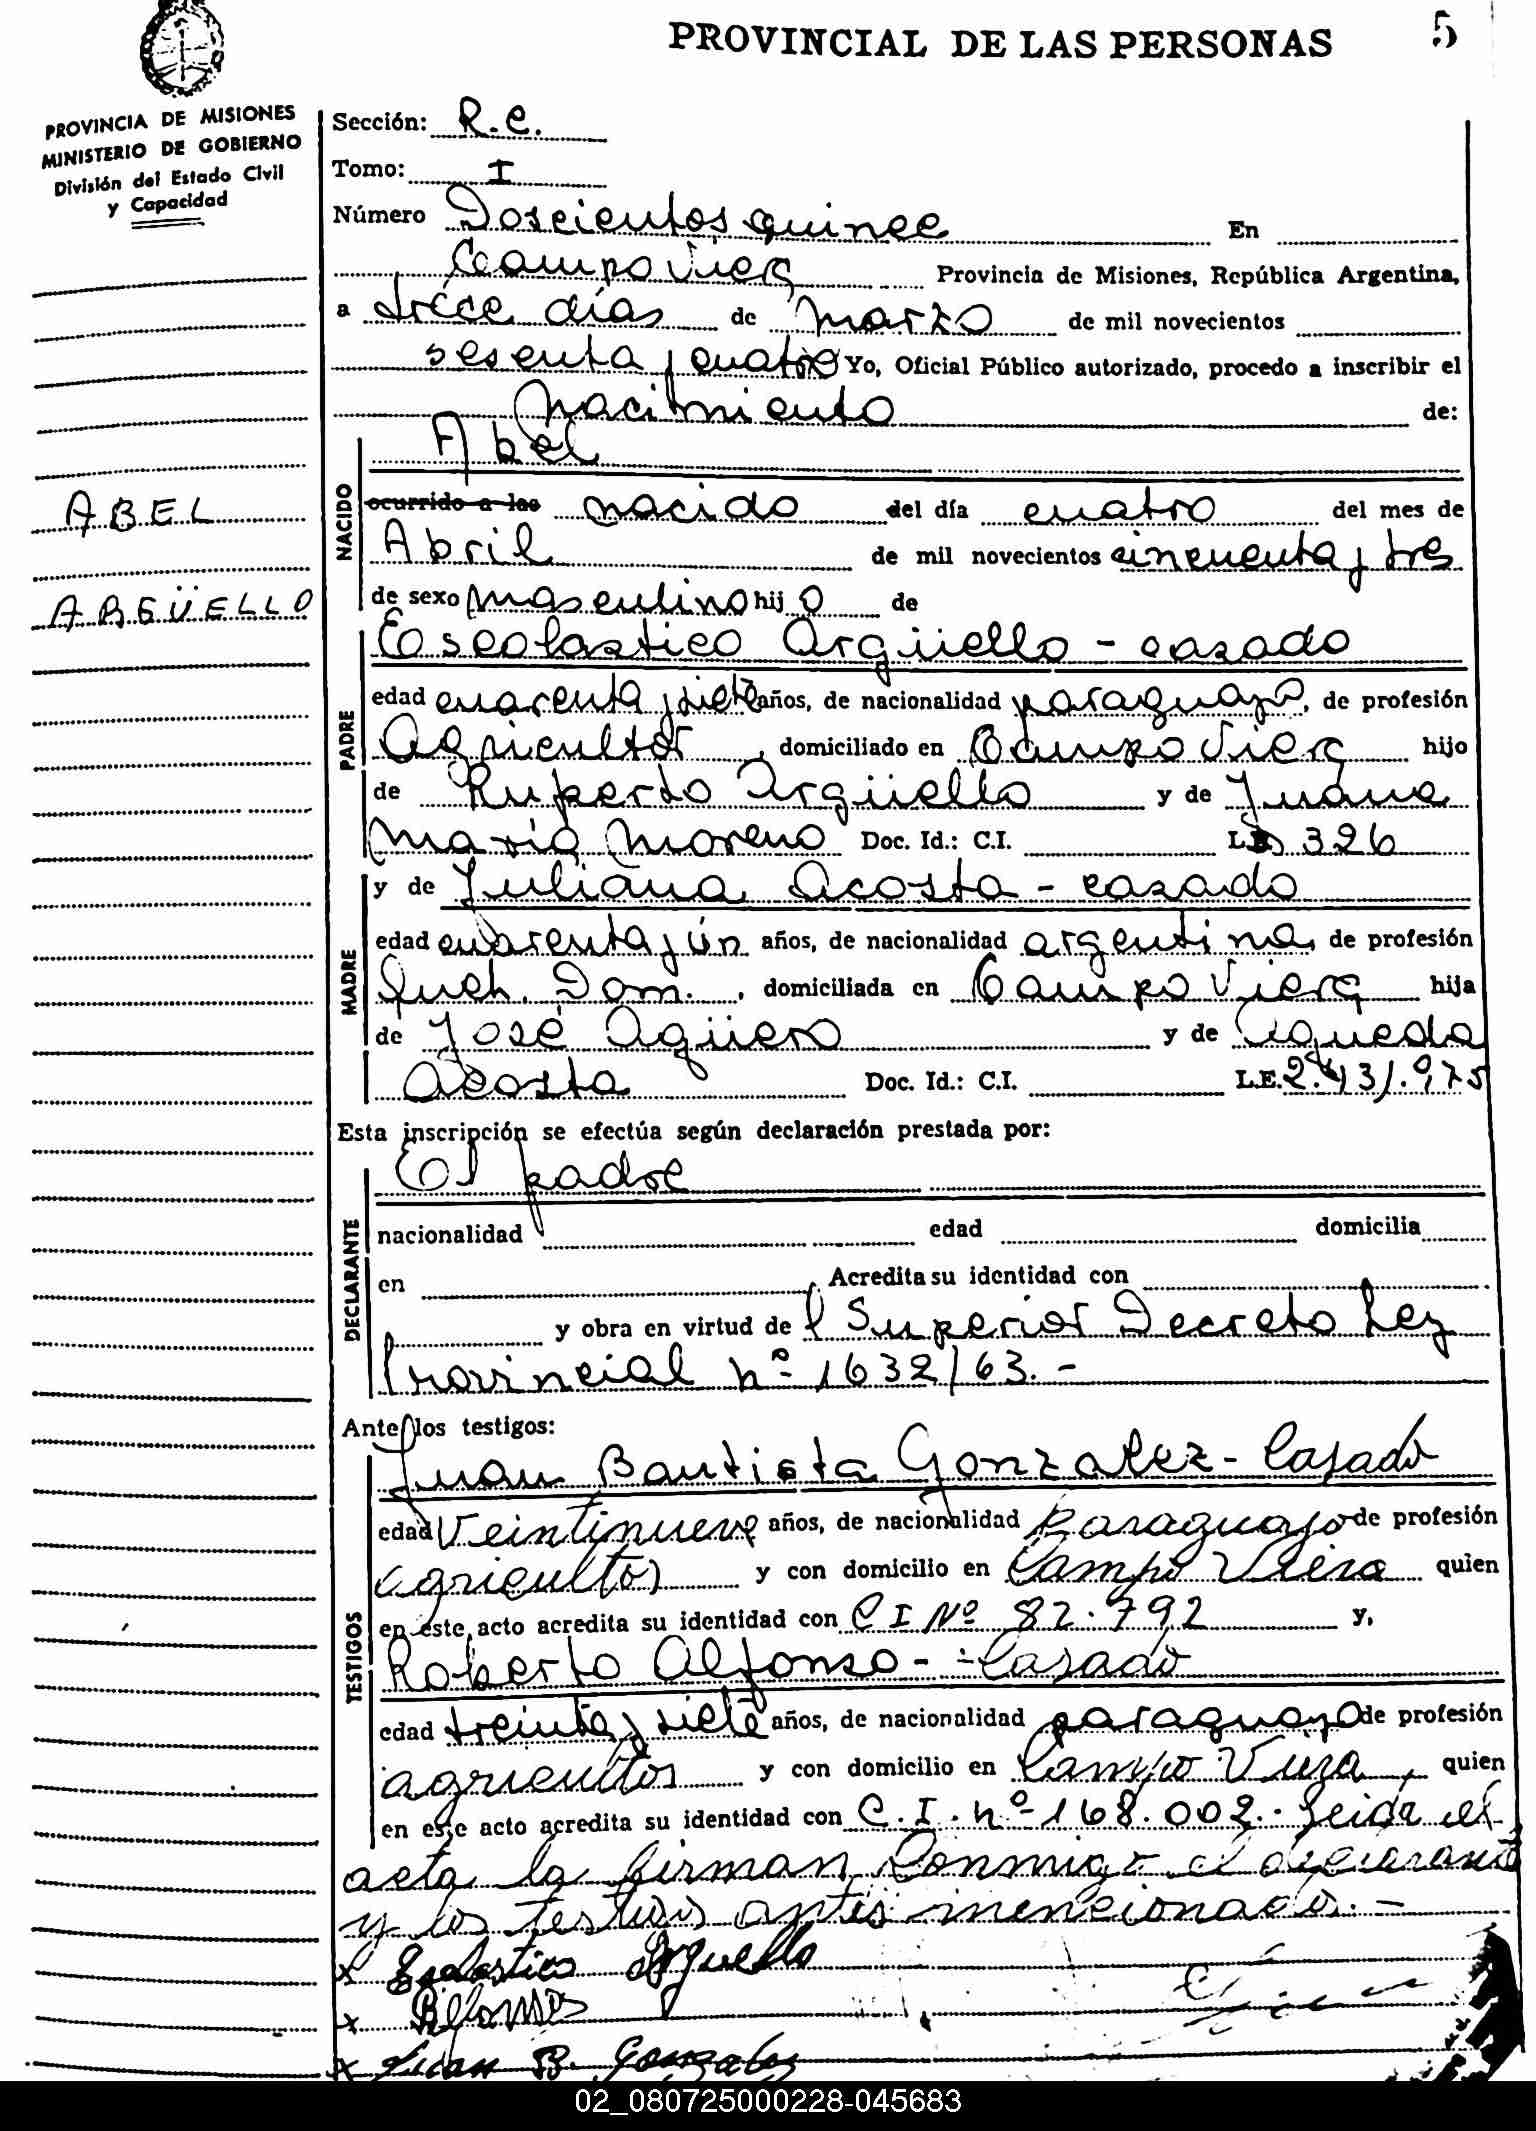 PROVINCIAL DE LAS PERSONAS 5
PROVINCIA DE MISIONES
MINISTERIO DE GOBIERNO
División del Estado Civil
y Capacidad
ABEL
ARGÜELLO
Sección: R.C.
Tomo: I
Número Doscientos quince En
Campo Viera Provincia de Misiones, República Argentina,
a trece días de marzo de mil novecientos
sesenta y cuatro Yo, Oficial Público autorizado, procedo a inscribir el
nacimiento de:
Abel
NACIDO
ocurrido a las nacido del día cuatro del mes de
Abril de mil novecientos cincuenta y tres
de sexo masculino hij o de
Escolastico Argüello - casado
PADRE
edad cuarenta y siete años, de nacionalidad paraguayo, de profesión
Agricultor, domiciliado en Campo Viera hijo
de Ruperto Argüello y de Juana
María Moreno Doc. Id.: C.I. L. 326
y de Juliana Acosta - casada
MADRE
edad cuarenta y ún años, de nacionalidad argentina, de profesión
Queh. Dom., domiciliada en Campo Viera hija
de José Agüero y de Agueda
Acosta Doc. Id.: C.I. L.E. 2.431.975
Esta inscripción se efectúa según declaración prestada por:
El padre
DECLARANTE
nacionalidad edad domicilia
en Acredita su identidad con
y obra en virtud de l Superior Decreto Ley
Provincial nº 1632/63.-
Ante los testigos:
Juan Bautista Gonzalez - Casado
TESTIGOS
edad Veintinueve años, de nacionalidad Paraguayo de profesión
agricultor y con domicilio en Campo Viera quien
en este acto acredita su identidad con C I Nº 82.792 y,
Roberto Alfonso - - Casado
edad treinta y siete años, de nacionalidad paraguayo de profesión
agricultor y con domicilio en Campo Viera, quien
en este acto acredita su identidad con C.I. nº 168.002. Leida el
acta la firman Conmigo el declarante
y los testigos antes mencionados.-
x Escolastico Arguello
x RAlfonso
x Juan B. Gonzalez
02_080725000228-045683